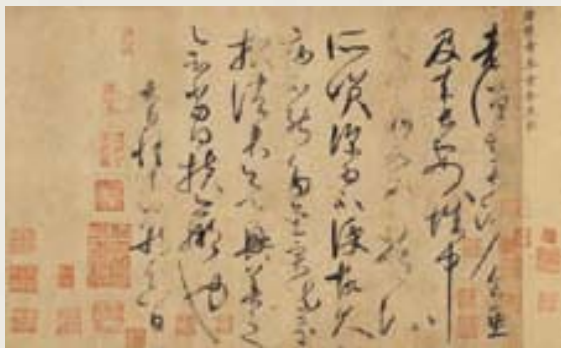 老僧在長沙食魚
及來長安城中
多食肉又為常流
所笑深為不便故久
病不能多書實疏
還報諸君欲興善之
會當得扶羸也
九日懷素藏真白